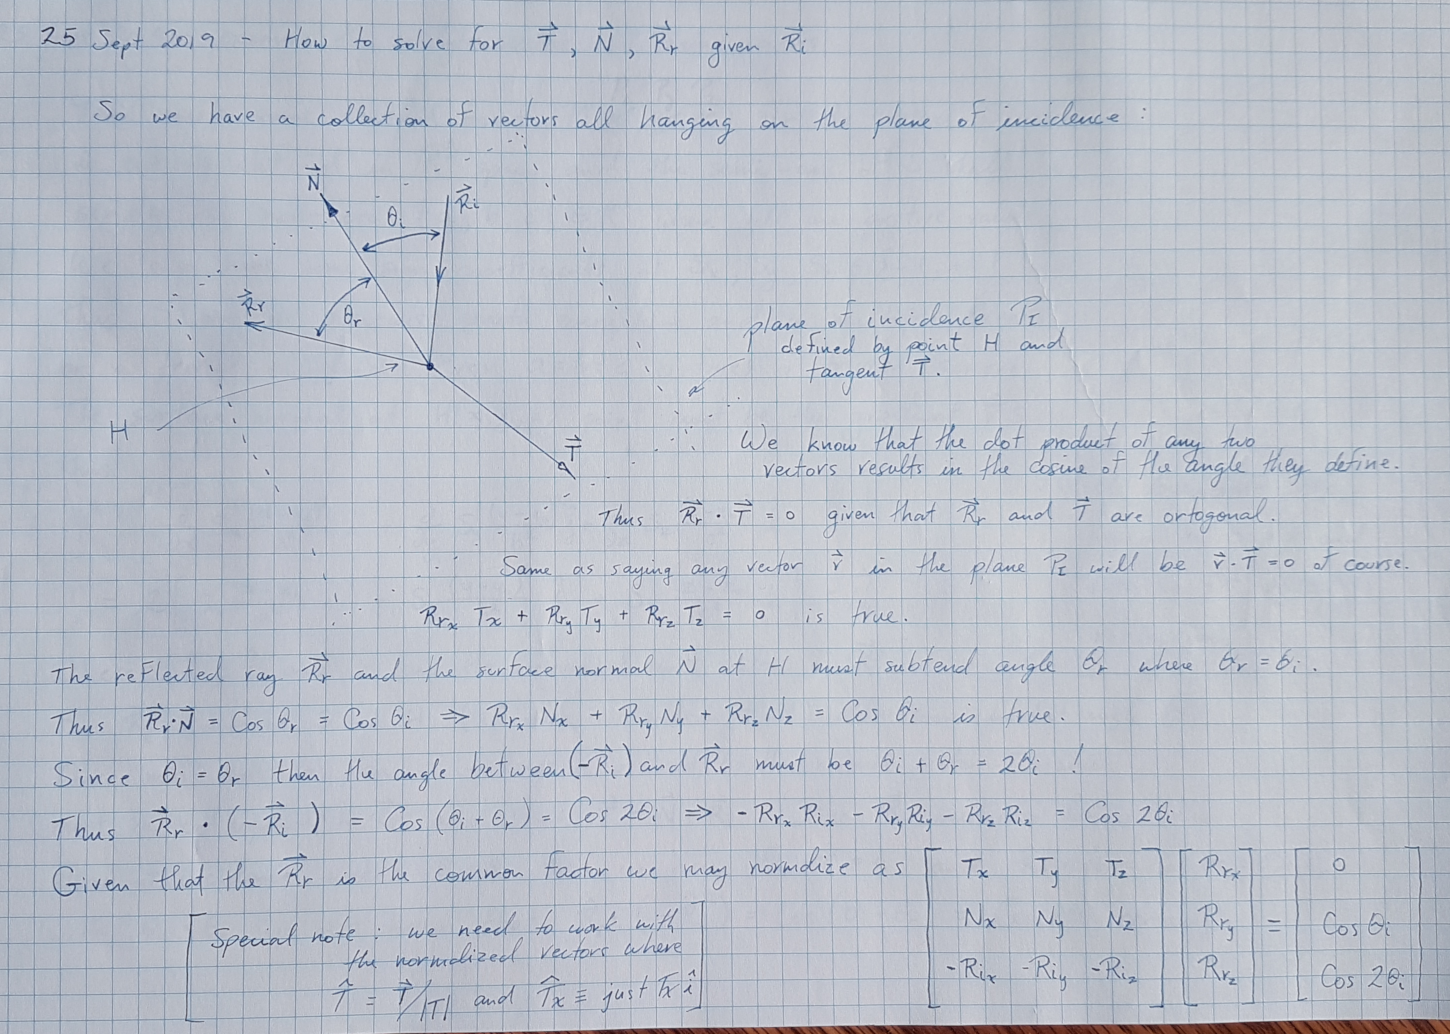 25 Sept 2019 - How to solve for T⃗, N⃗, R⃗r given R⃗i
So we have a collection of vectors all hanging on the plane of incidence :
N⃗
R⃗i
θi
R⃗r
θr
H
T⃗
plane of incidence PI
defined by point H and
tangent T⃗.
We know that the dot product of any two
vectors results in the cosine of the angle they define.
Thus R⃗r · T⃗ = 0 given that R⃗r and T⃗ are ortogonal.
Same as saying any vector r⃗ in the plane PI will be r⃗·T⃗ = 0 of course.
Rrx Tx + Rry Ty + Rrz Tz = 0 is true.
The reflected ray R⃗r and the surface normal N⃗ at H must subtend angle θr where θr = θi.
Thus R⃗r·N⃗ = Cos θr = Cos θi ⇒ Rrx Nx + Rry Ny + Rrz Nz = Cos θi is true.
Since θi = θr then the angle between (-R⃗i) and R⃗r must be θi + θr = 2θi !
Thus R⃗r · (-R⃗i) = Cos (θi + θr) = Cos 2θi ⇒ - Rrx Rix - Rry Riy - Rrz Riz = Cos 2θi
Given that the R⃗r is the common factor we may normalize as
[Tx Ty Tz] [Rrx] [0]
[Nx Ny Nz] [Rry] = [Cos θi]
[-Rix -Riy -Riz] [Rrz] [Cos 2θi]
[Special note : we need to work with
the normalized vectors where
T̂ = T⃗/|T| and T̂x ≡ just Tx î]